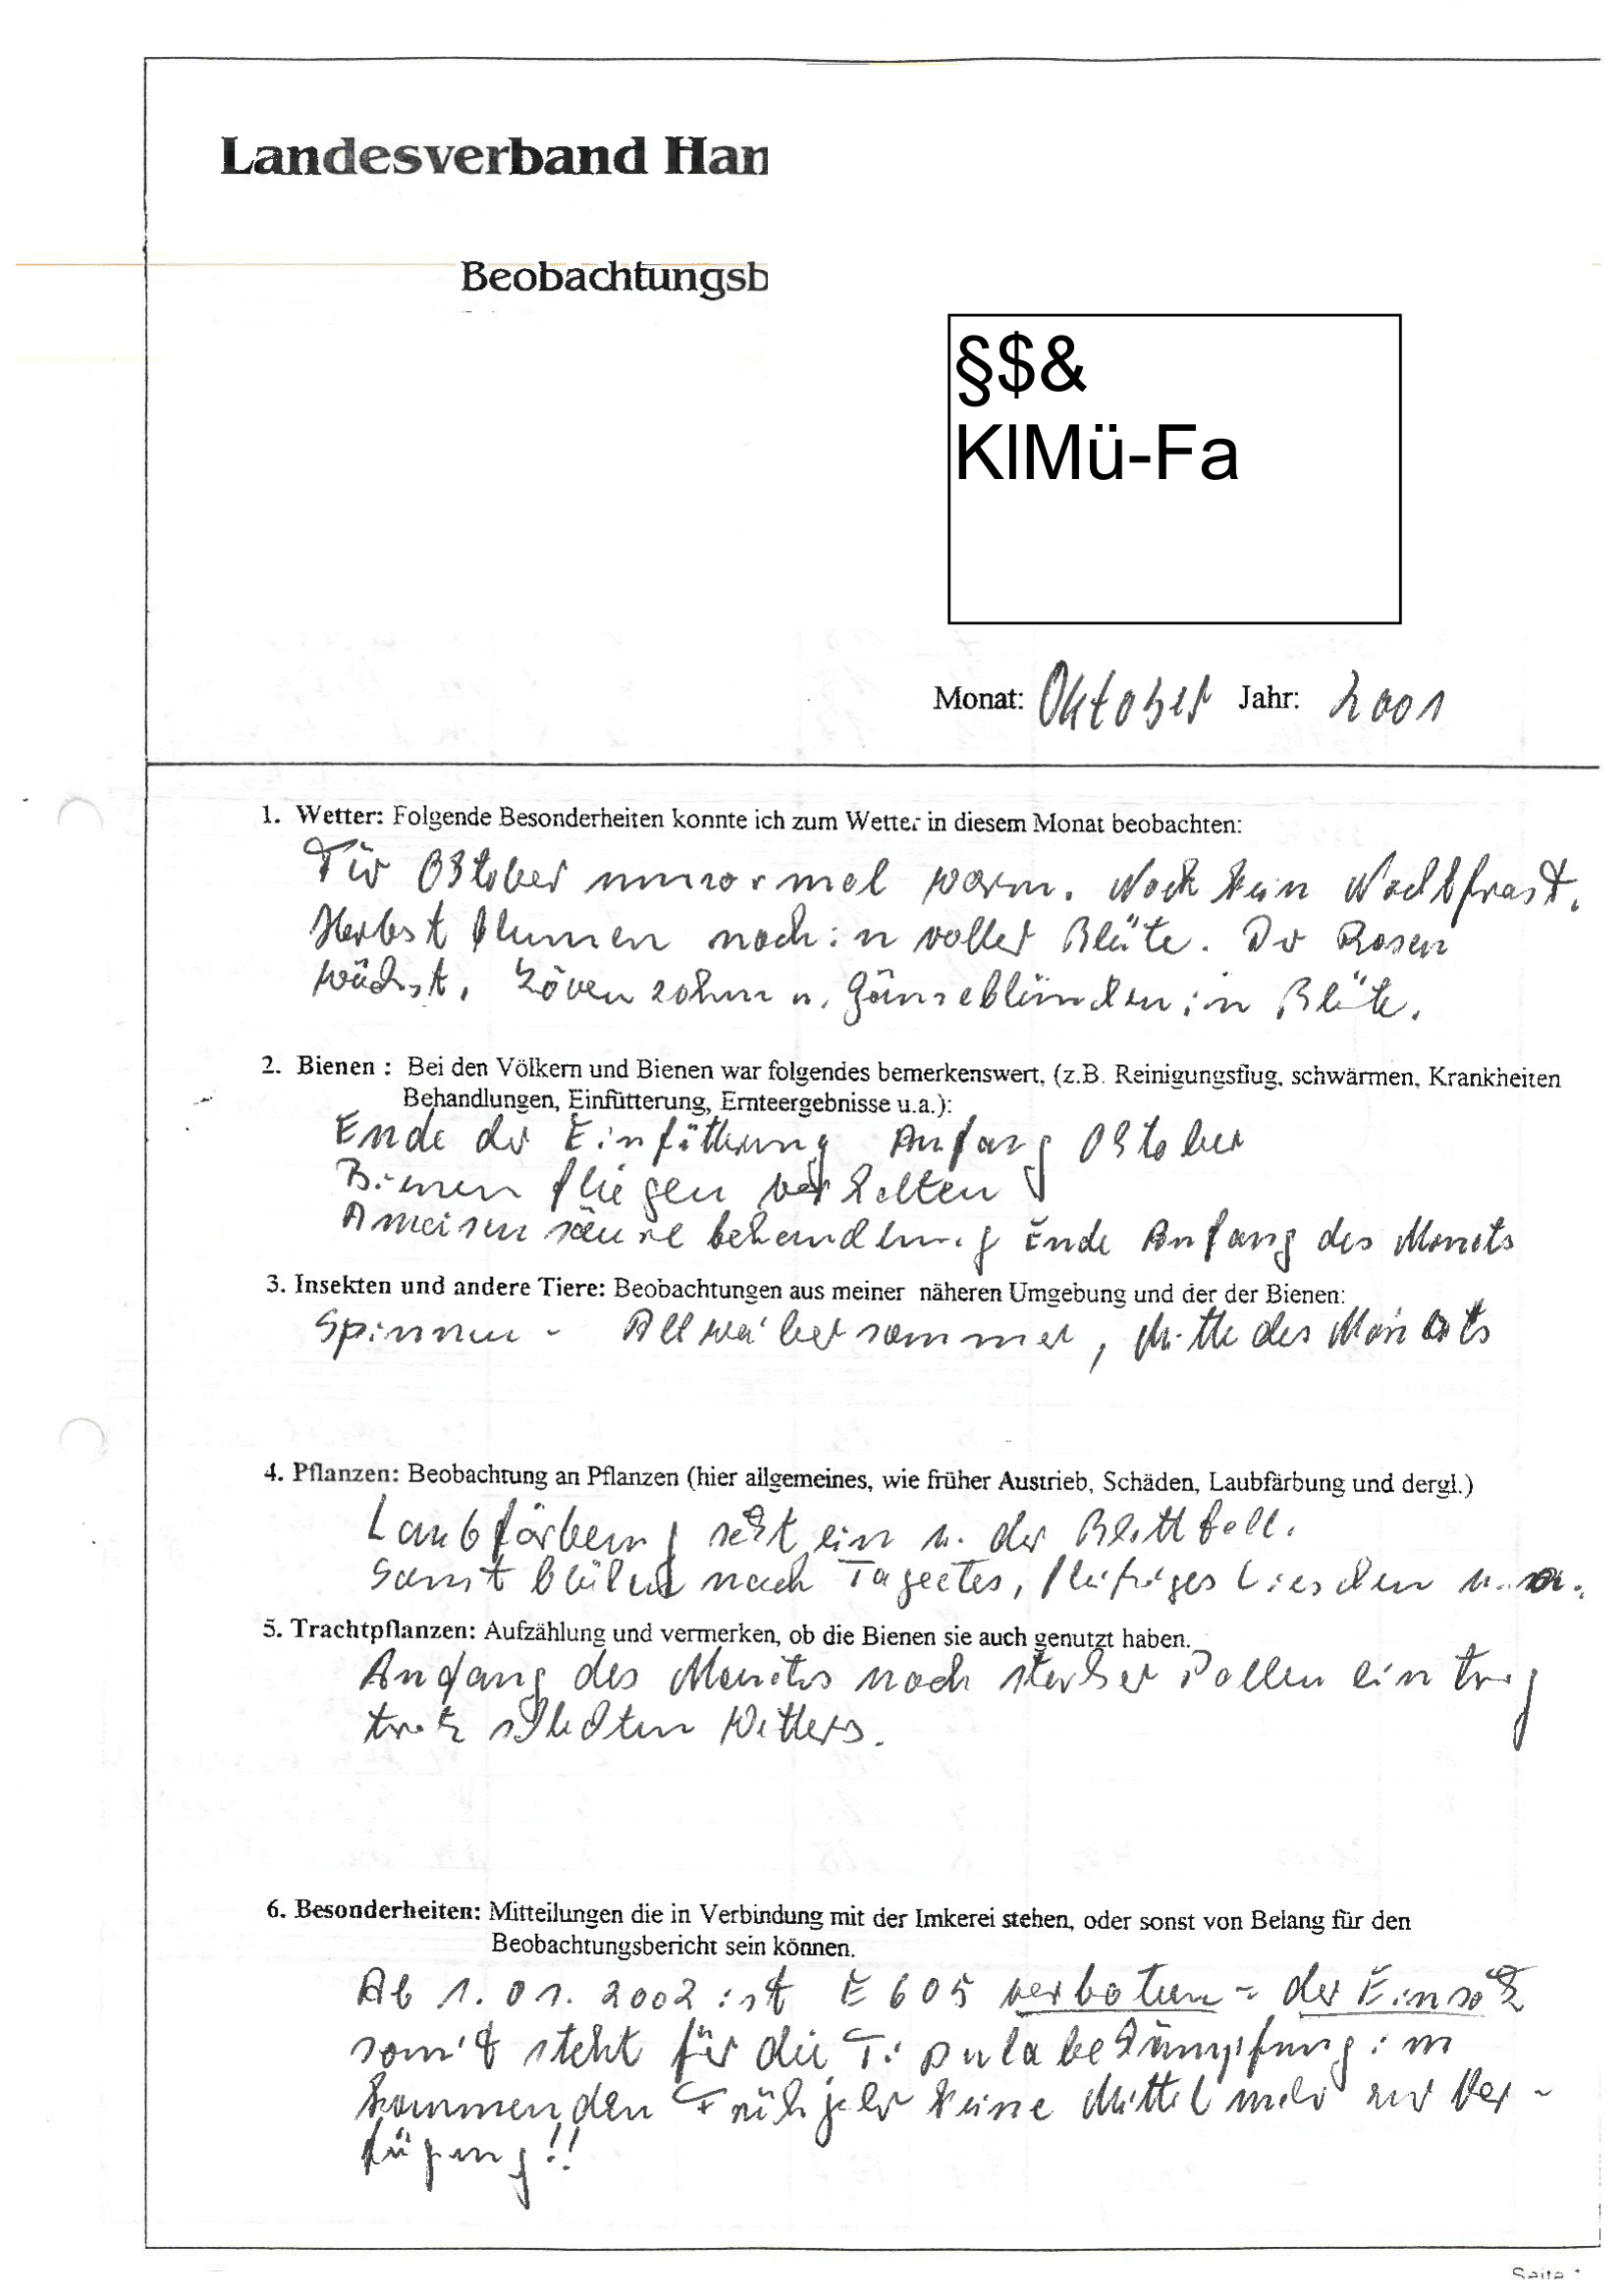 Landesverband Han
Beobachtungsb
§$&
KlMü-Fa
Monat: Oktober Jahr: 2001
1. Wetter: Folgende Besonderheiten konnte ich zum Wetter in diesem Monat beobachten:
Für Oktober unnormal warm. Noch kein Nachtfrost.
Herbstblumen noch in voller Blüte. Der Rasen
wächst, Löwenzahn u. Gänseblümchen in Blüte.
2. Bienen : Bei den Völkern und Bienen war folgendes bemerkenswert, (z.B. Reinigungsflug, schwärmen, Krankheiten
Behandlungen, Einfütterung, Ernteergebnisse u.a.):
Ende der Einfütterung Anfang Oktober
Bienen fliegen verhalten
Ameisensäurebehandlung Ende Anfang des Monats
3. Insekten und andere Tiere: Beobachtungen aus meiner näheren Umgebung und der der Bienen:
Spinnen - Altweibersommer, Mitte des Monats
4. Pflanzen: Beobachtung an Pflanzen (hier allgemeines, wie früher Austrieb, Schäden, Laubfärbung und dergl.)
Laubfärbung setzt ein u. der Blattfall.
Sonst blühen noch Tagetes, fleißiges Lieschen u. a.
5. Trachtpflanzen: Aufzählung und vermerken, ob die Bienen sie auch genutzt haben.
Anfang des Monats noch starker Polleneintrag
trotz schlechten Wetters.
6. Besonderheiten: Mitteilungen die in Verbindung mit der Imkerei stehen, oder sonst von Belang für den
Beobachtungsbericht sein können.
Ab 1.01.2002 ist E 605 verboten - der Einsatz
somit steht für die Tipulabekämpfung im
kommenden Frühjahr keine Mittel mehr zur Ver-
fügung!!